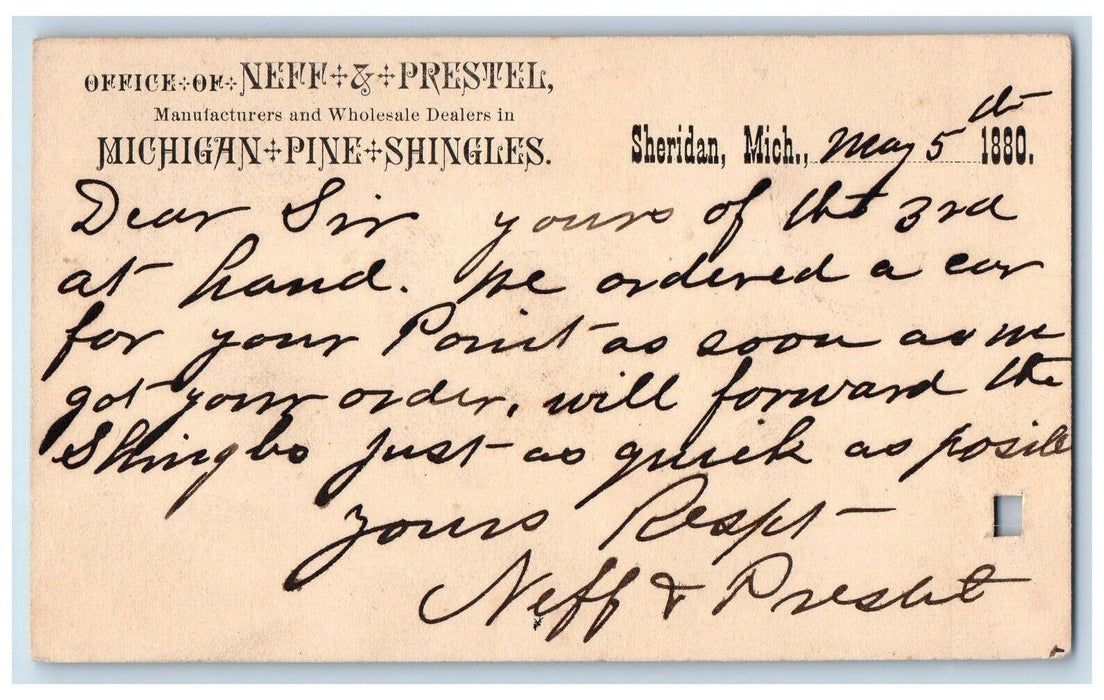 OFFICE OF NEFF & PRESTEL,
Manufacturers and Wholesale Dealers in
MICHIGAN PINE SHINGLES.
Sheridan, Mich., May 5th 1880.
Dear Sir yours of the 3rd
at hand. We ordered a car
for your Point as soon as we
got your order, will forward the
Shingles just as quick as posible
yours Respt
Neff & Prestel